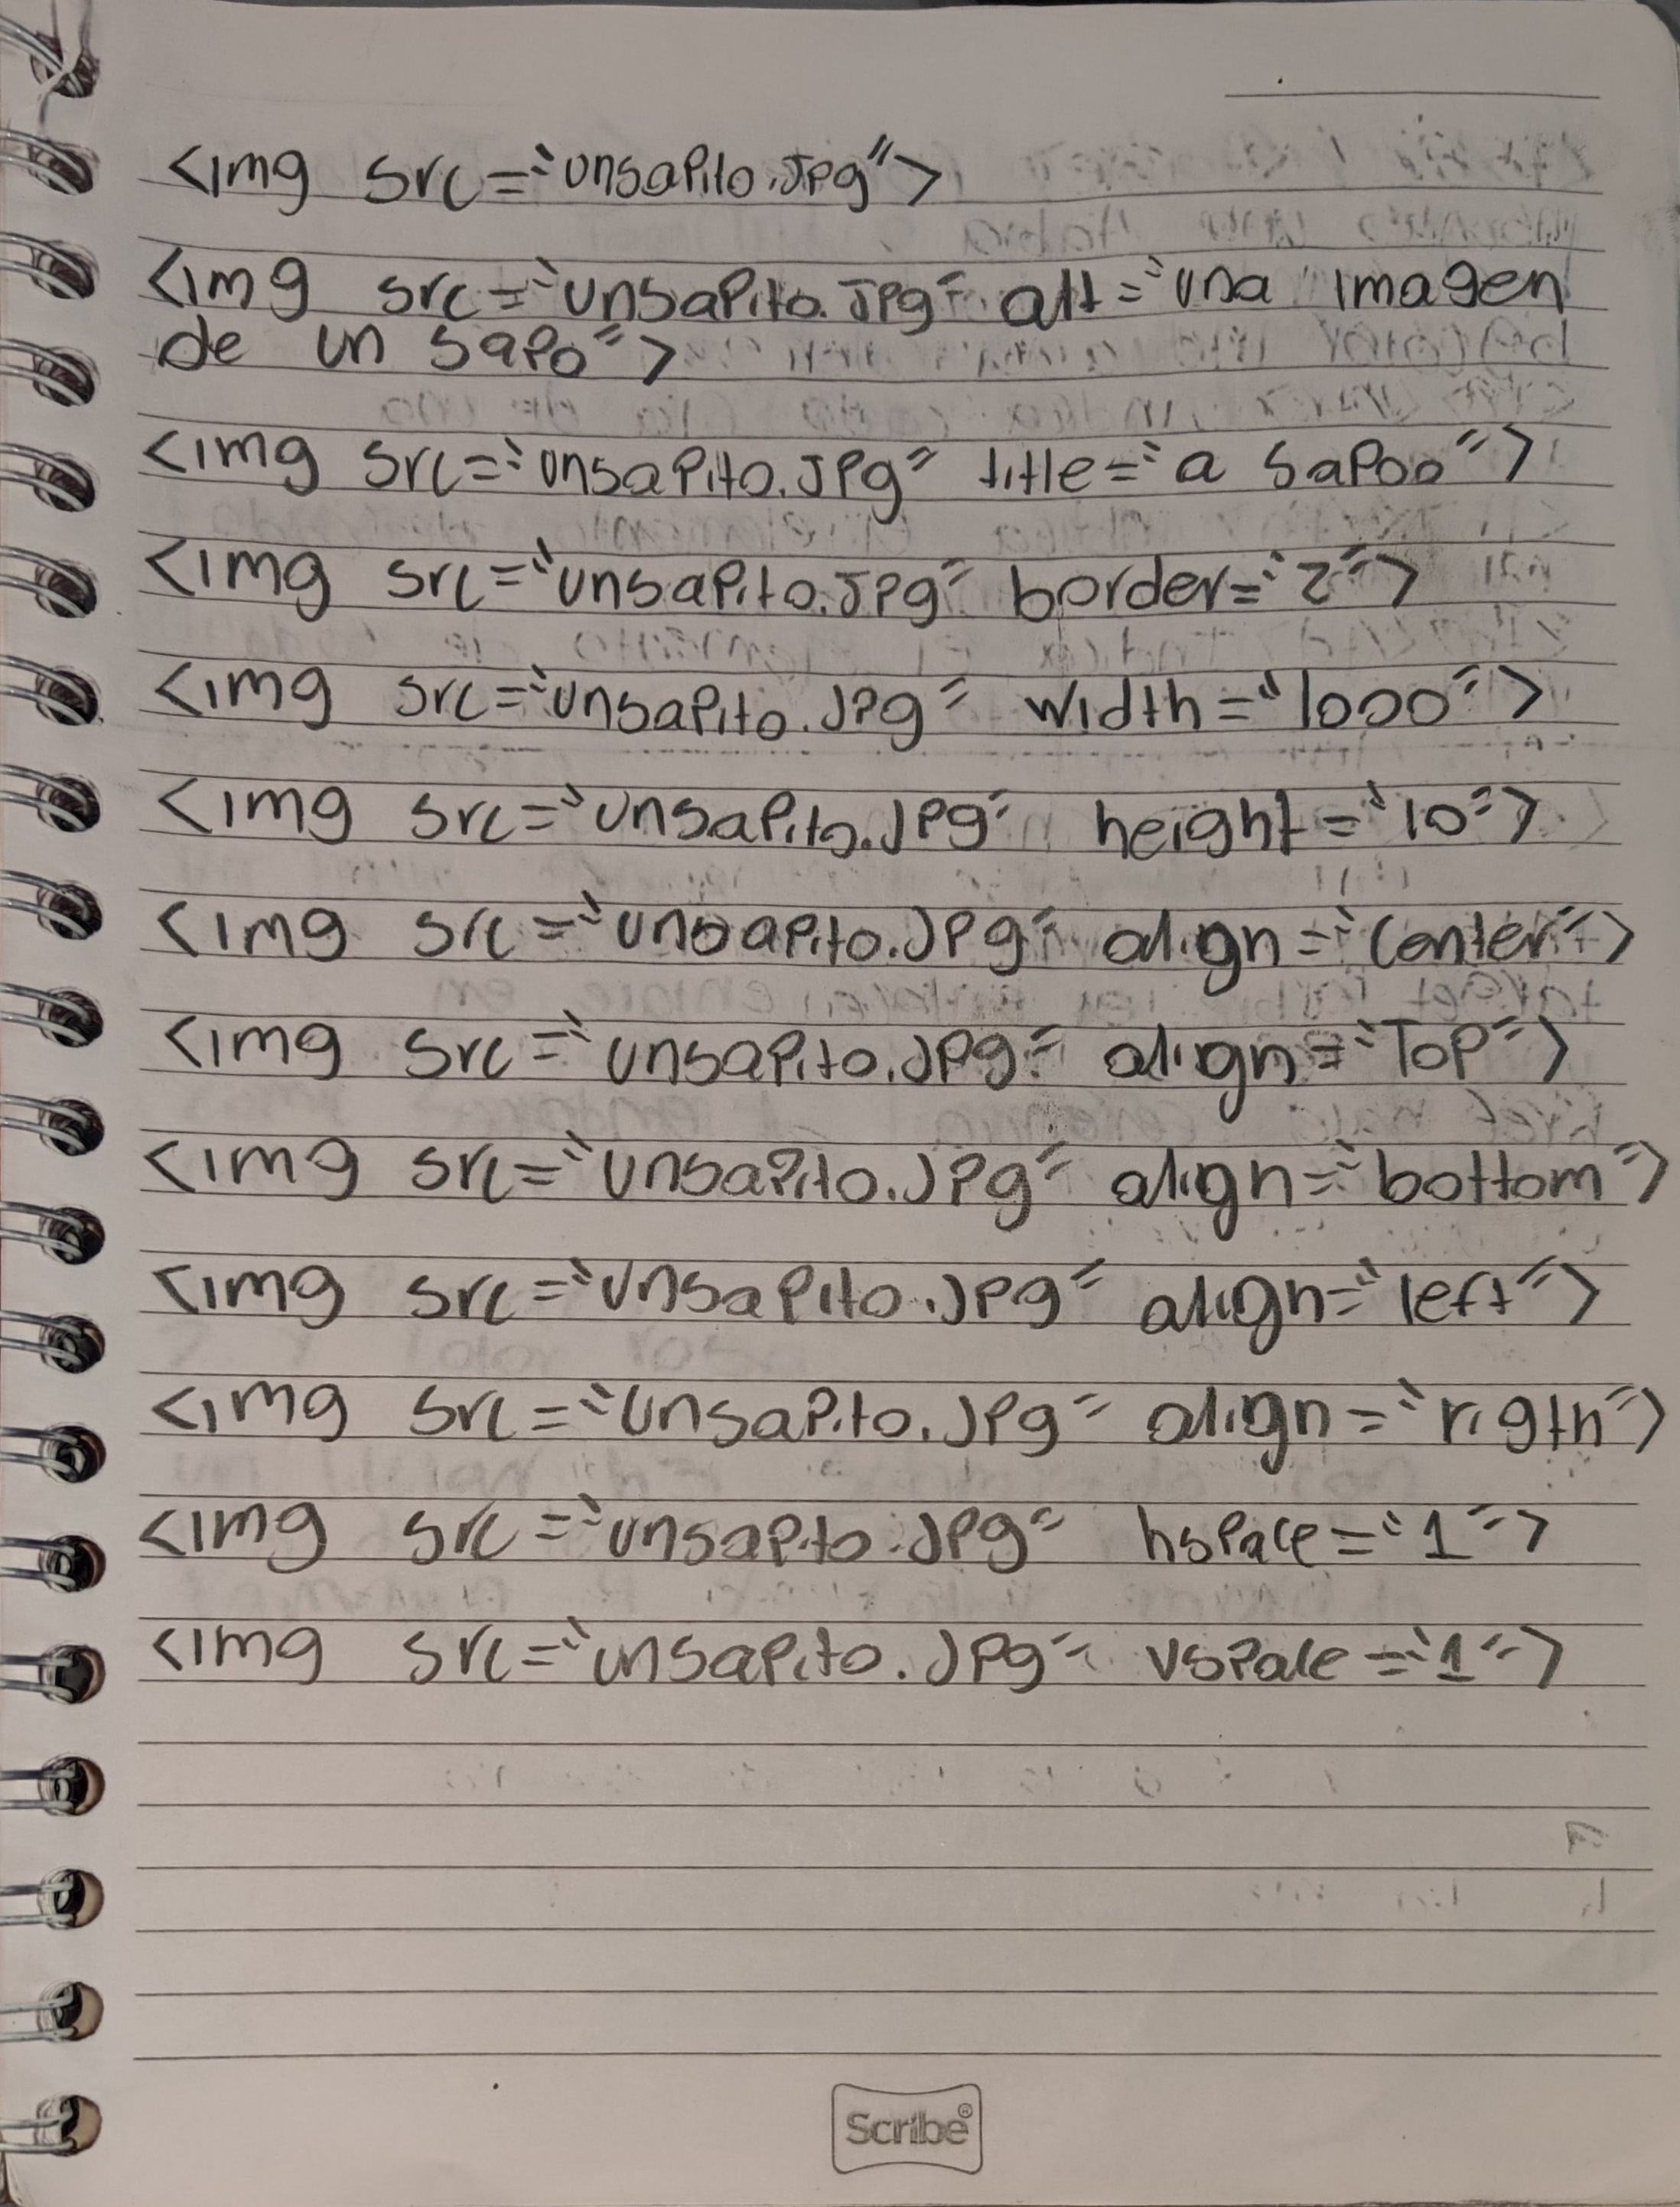 <img src="unsapito.Jpg">
<img src="unsapito.Jpg" alt="una imagen
de un sapo">
<img src="unsapito.JPg" title="a sapoo">
<img src="unsapito.Jpg" border="2">
<img src="unsapito.Jpg" width="1000">
<img src="unsapito.JPg" height="10">
<img src="unsapito.JPg" align="center">
<img src="unsapito.Jpg" align="Top">
<img src="unsapito.JPg" align="bottom">
<img src="unsapito.Jpg" align="left">
<img src="unsapito.JPg" align="rigth">
<img src="unsapito.JPg" hspace="1">
<img src="unsapito.JPg" vspace="1">
Scribe®